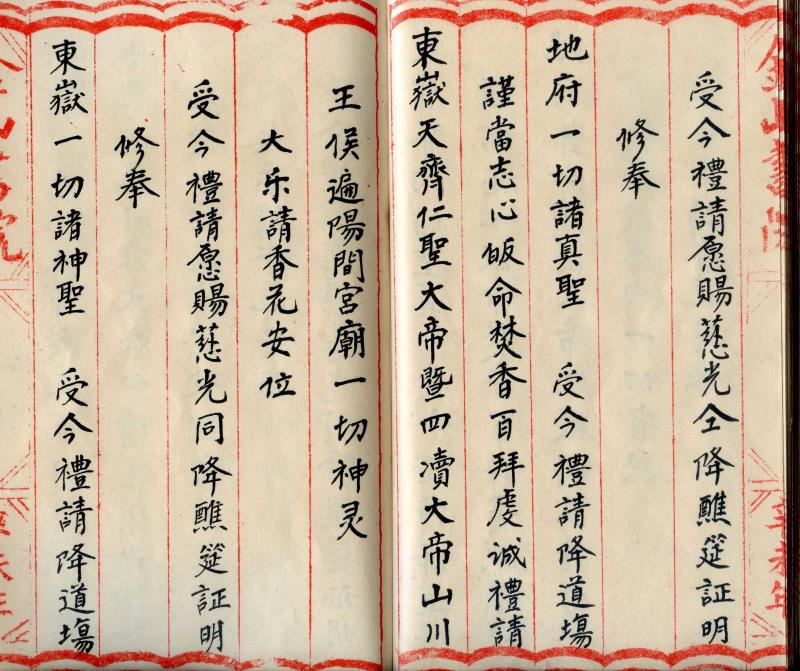 受今禮請愿賜慈光仝降醮筵証明
修奉
地府一切諸真聖　受今禮請降道塲
謹當志心皈命焚香百拜虔誠禮請
東嶽天齊仁聖大帝暨四瀆大帝山川
王侯遍陽間宮廟一切神灵
大乐請香花安位
受今禮請愿賜慈光同降醮筵証明
修奉
東嶽一切諸神聖　受今禮請降道塲